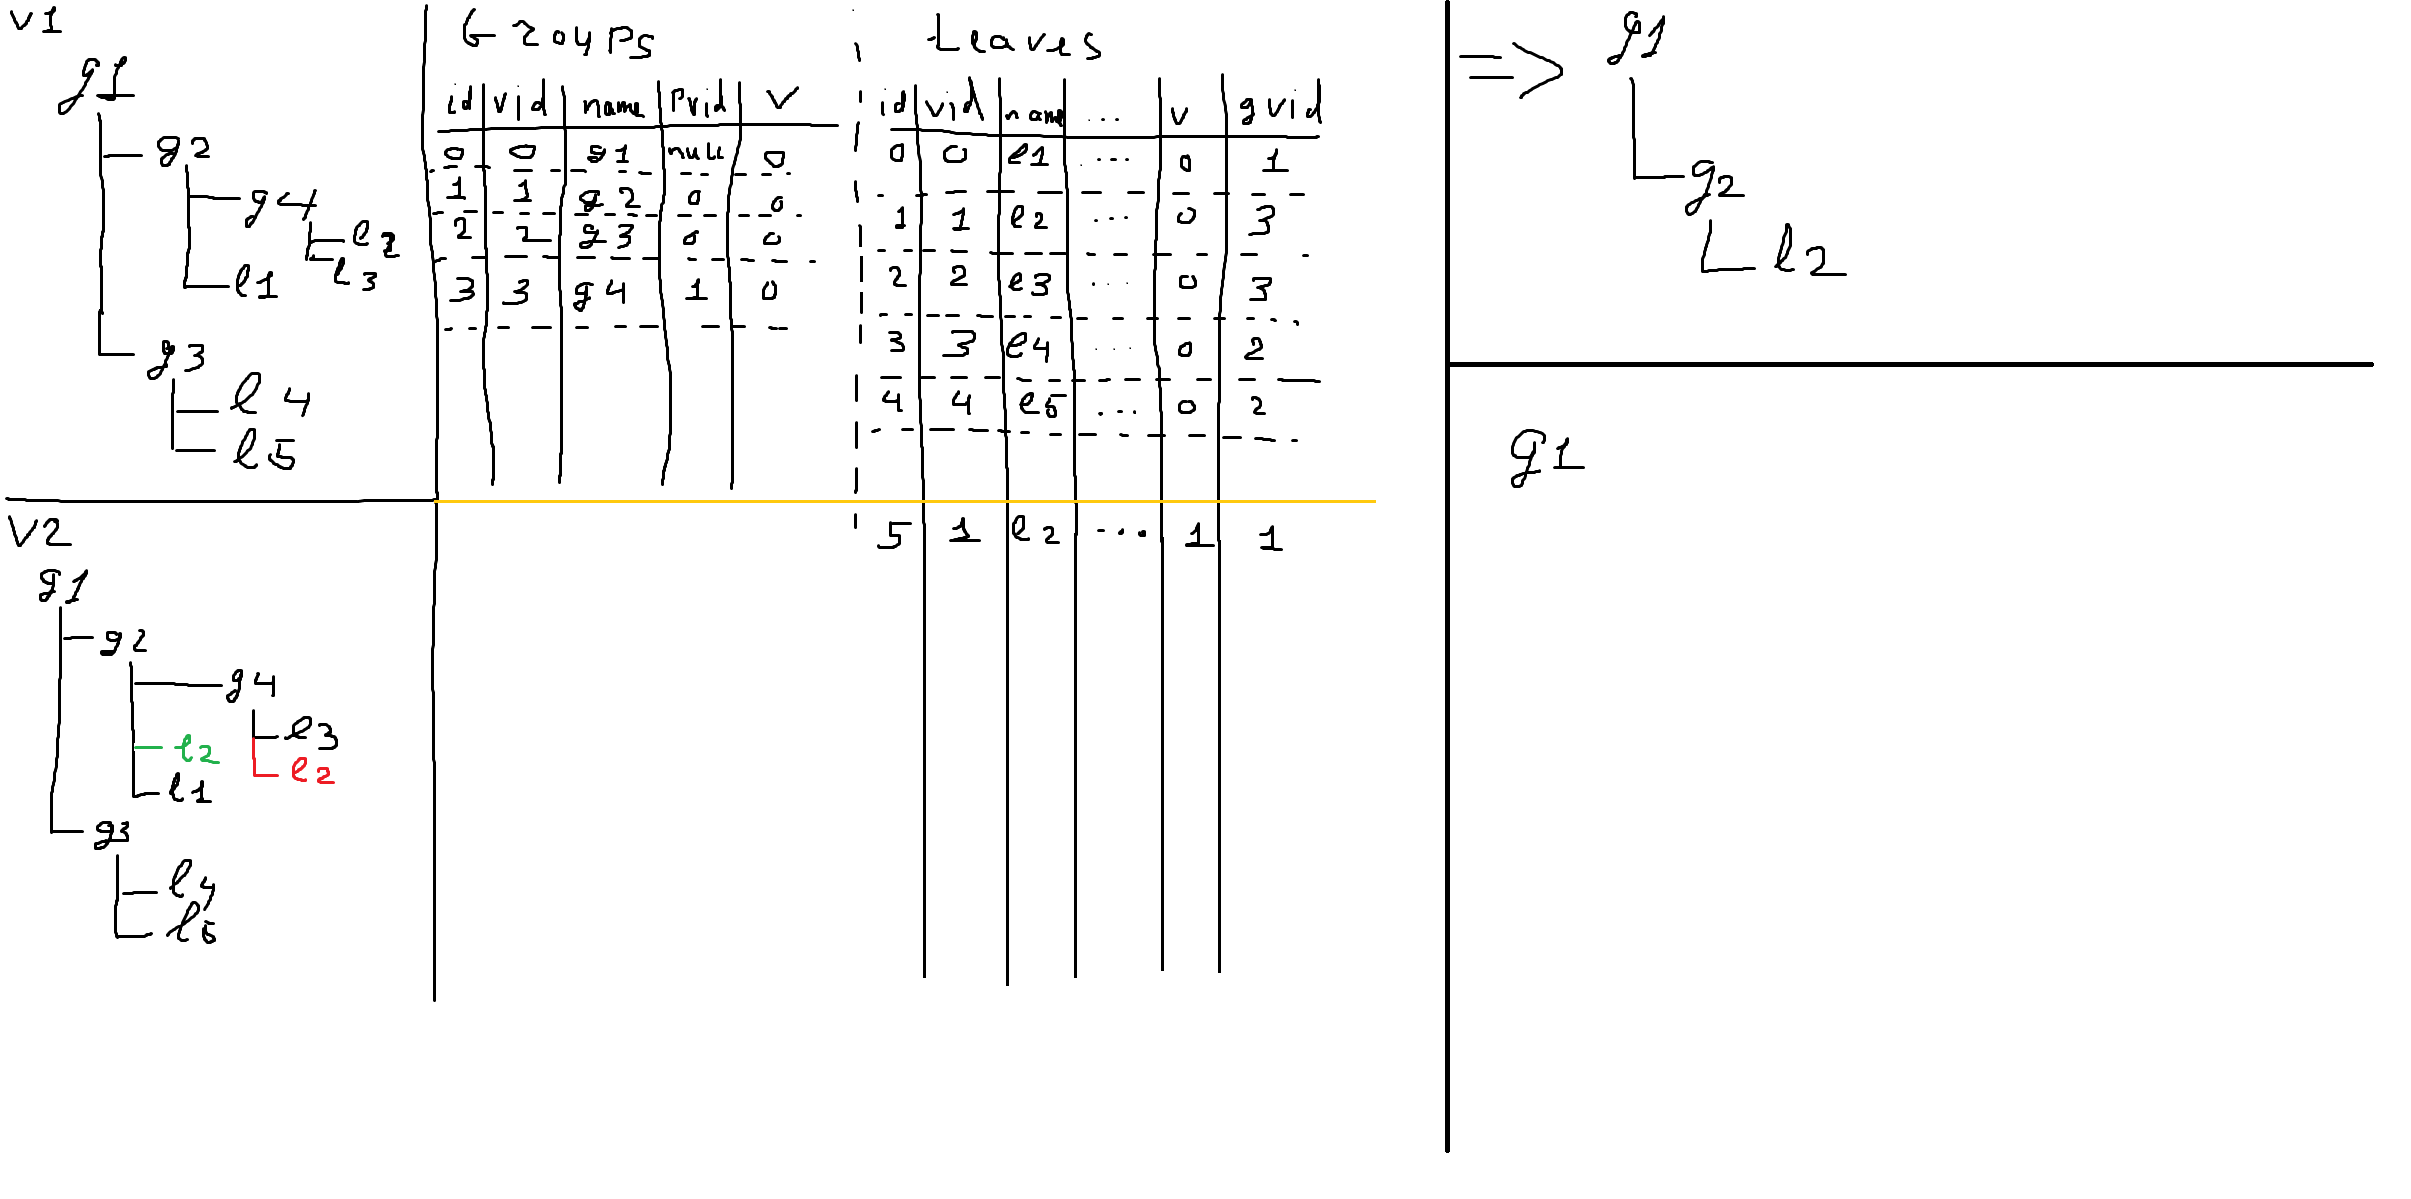 v1
g1
g2
g4
l2
l3
l1
g3
l4
l5
Groups
id vid name pvid v
0 0 g1 null 0
1 1 g2 0 0
2 2 g3 0 0
3 3 g4 1 0
Leaves
id vid name ... v gvid
0 0 l1 ... 0 1
1 1 l2 ... 0 3
2 2 l3 ... 0 3
3 3 l4 ... 0 2
4 4 l5 ... 0 2
5 1 l2 ... 1 1
=> g1
g2
l2
g1
V2
g1
g2
g4
l3
l2
l2
l1
g3
l4
l5